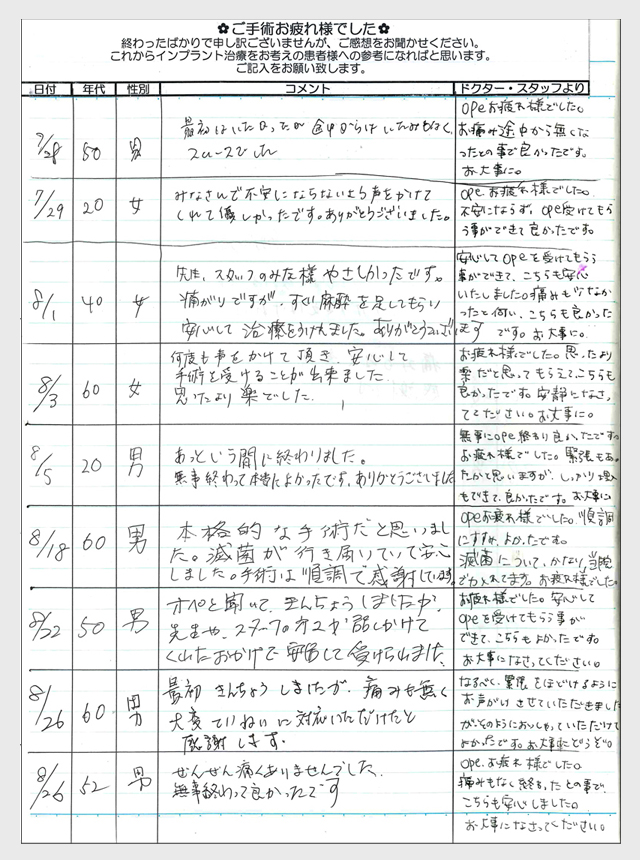 ✿ご手術お疲れ様でした✿
終わったばかりで申し訳ございませんが、ご感想をお聞かせください。
これからインプラント治療をお考えの患者様への参考になればと思います。
ご記入をお願い致します。
日付 年代 性別 コメント ドクター・スタッフより
7/28 50 男
最初はいたかったが途中からはいたみもなく、
スムーズでした
opeお疲れ様でした。
お痛み途中から無くな
ったとの事で良かったです。
お大事に。
7/29 20 女
みなさんで不安にならないよう声をかけて
くれて優しかったです。ありがとうございました。
opeお疲れ様でした。
不安にならず、ope受けてもら
う事ができて良かったです。
8/1 40 女
先生、スタッフのみな様 やさしかったです。
痛がりですが、すぐ麻酔を足してもらい
安心して治療をうけれました。ありがとうございます
安心してopeを受けてもらう
事ができて、こちらも安心
いたしました。痛みも少なか
ったと伺い、こちらも良かった
です。お大事に。
8/3 60 女
何度も声をかけて頂き、安心して
手術を受けることが出来ました
思ったより楽でした。
お疲れ様でした。思ったより
楽だと思ってもらえて、こちらも
良かったです。安静になさっ
てください。お大事に。
8/5 20 男
あっという間に終わりました。
無事終わって本当によかったです。ありがとうございました
無事にope終わり良かったです。
お疲れ様でした。緊張もあっ
たかと思いますが、しっかり
もできて、良かったです。お大事に。
8/18 60 男
本格的な手術だと思いまし
た。滅菌が行き届いていて安心
しました。手術は順調で感謝しています。
opeお疲れ様でした。順調
にすすみ、よかったです。
滅菌について、かなり当院
で力入れてます。お疲れ様でした。
8/22 50 男
オペと聞いて、きんちょうしましたが、
先生や、スタッフの方々が話しかけて
くれたおかげで安心して受けられました。
お疲れ様でした。安心して
opeを受けてもらう事が
できて、こちらもよかったです。
お大事になさってください。
8/26 60 男
最初きんちょうしましたが、痛みも無く
大変ていねいに対応いただけたと
感謝します。
なるべく、緊張をほどけるように
お声がけさせていただきました
が、そのようにおっしゃっていただけて
よかったです。お大事にどうぞ。
8/26 52 男
ぜんぜん痛くありませんでした。
無事終わって良かったです
ope、お疲れ様でした。
痛みもなく終わったとの事で、
こちらも安心しました。
お大事になさってください。